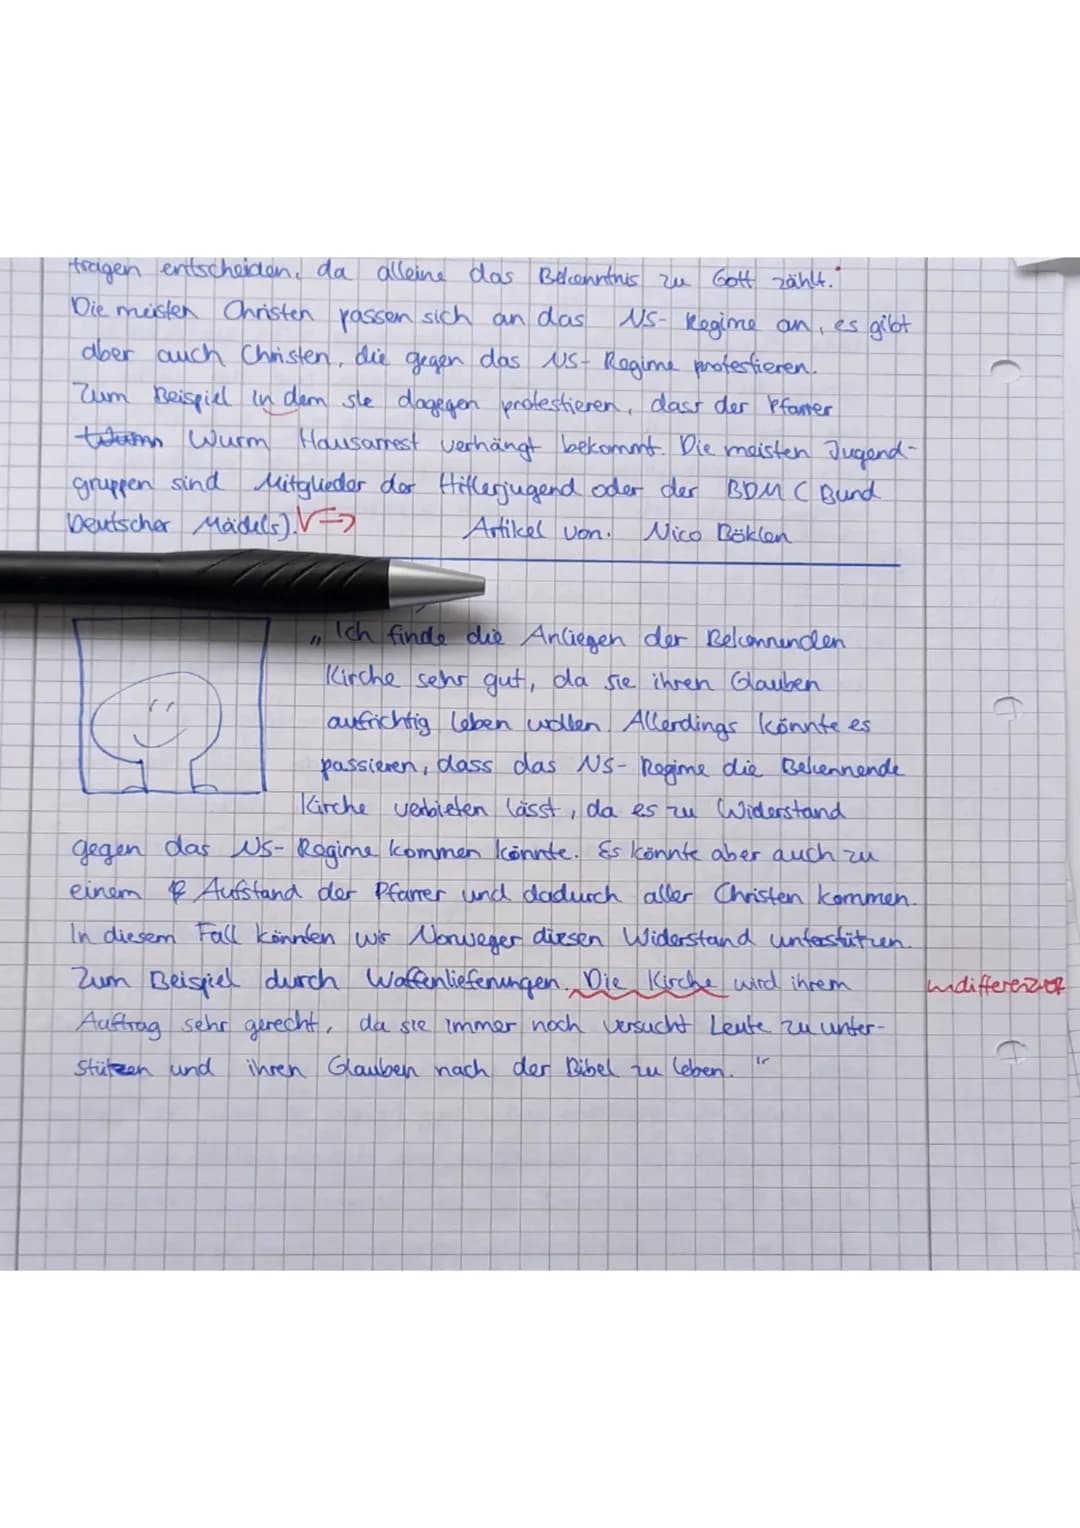 fragen entscheiden, da alleine das Bekenntnis zu Gott zählt.
Die meisten Christen passen sich an das NS-Regime an, es gibt
aber auch Christen, die gegen das NS-Regime protestieren.
Zum Beispiel in dem sie dagegen protestieren, dass der Pfarrer
Wurm Hausarrest verhängt bekommt. Die meisten Jugend-
gruppen sind Mitglieder der Hitlerjugend oder der BDM (Bund
Deutscher Mädels).
Artikel von: Nico Böklen
„Ich finde die Anliegen der Bekennenden
Kirche sehr gut, da sie ihren Glauben
aufrichtig leben wollen. Allerdings könnte es
passieren, dass das NS-Regime die Bekennende
Kirche verbieten lässt, da es zu Widerstand
gegen das NS-Regime kommen könnte. Es könnte aber auch zu
einem Aufstand der Pfarrer und dadurch aller Christen kommen.
In diesem Fall könnten wir Norweger diesen Widerstand unterstützen.
Zum Beispiel durch Waffenlieferungen. Die Kirche wird ihrem
Auftrag sehr gerecht, da sie immer noch versucht Leute zu unter-
stützen und ihren Glauben nach der Bibel zu leben."